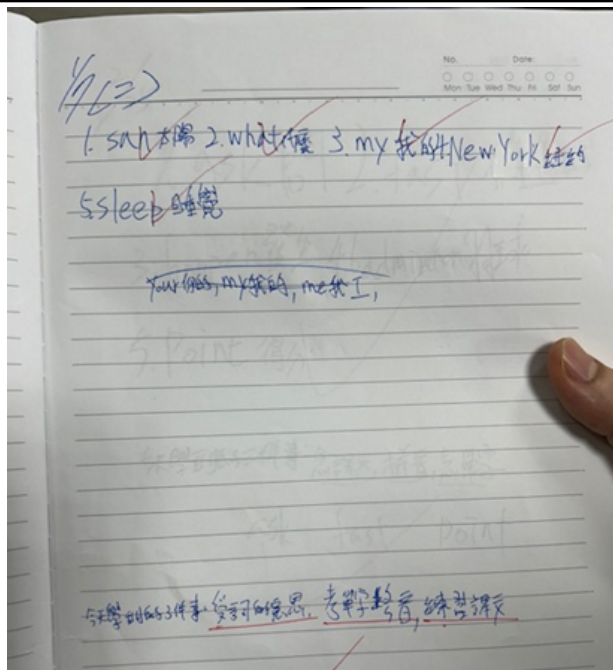 No. Date:
Mon Tue Wed Thu Fri Sat Sun
1/7(二)
1. san太陽 2. what什麼 3. my 我的 4New York 紐約
5.sleep 睡覺
Your 你的, my我的, me我 I,
今天學到的3件事: 受詞的意思, 考單字發音, 練習課文